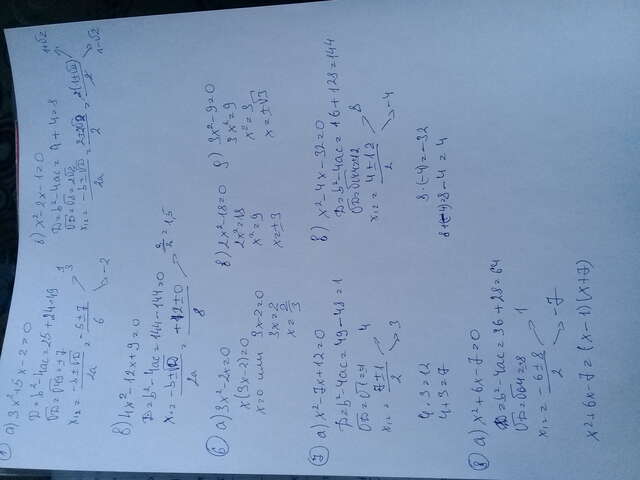 ① а) 3x²+5x-2=0
D=b²-4ac=25+24=49
√D=√49=±7
x₁,₂=(-b±√D)/2a=(-5±7)/6 ↗ 1/3 ↘ -2
б) x²-2x-1=0
D=b²-4ac=4+4=8
√D=√8=2√2
x₁,₂=(-b±√D)/2a=(2±2√2)/2=2(1±√2)/2 ↗ 1+√2 ↘ 1-√2
в) 4x²-12x+9=0
D=b²-4ac=144-144=0
x₁,₂=(-b±√D)/2a=(+12±0)/8 → 3/2=1,5
⑥ а) 3x²-2x=0
x(3x-2)=0
x=0 или 3x-2=0
3x=2
x=2/3
в) 2x²-18=0
2x²=18
x²=9
x=±3
д) 3x²-9=0
3x²=9
x²=3
x=±√3
⑦ а) x²-7x+12=0
D=b²-4ac=49-48=1
√D=√1=1
x₁,₂=(7±1)/2 ↗ 4 ↘ 3
4·3=12
4+3=7
в) x²-4x-32=0
D=b²-4ac=16+128=144
√D=√144=12
x₁,₂=(4±12)/2 ↗ 8 ↘ -4
8·(-4)=-32
8+(-4)=8-4=4
⑧ а) x²+6x-7=0
D=b²-4ac=36+28=64
√D=√64=8
x₁,₂=(-6±8)/2 ↗ 1 ↘ -7
x²+6x-7=(x-1)(x+7)